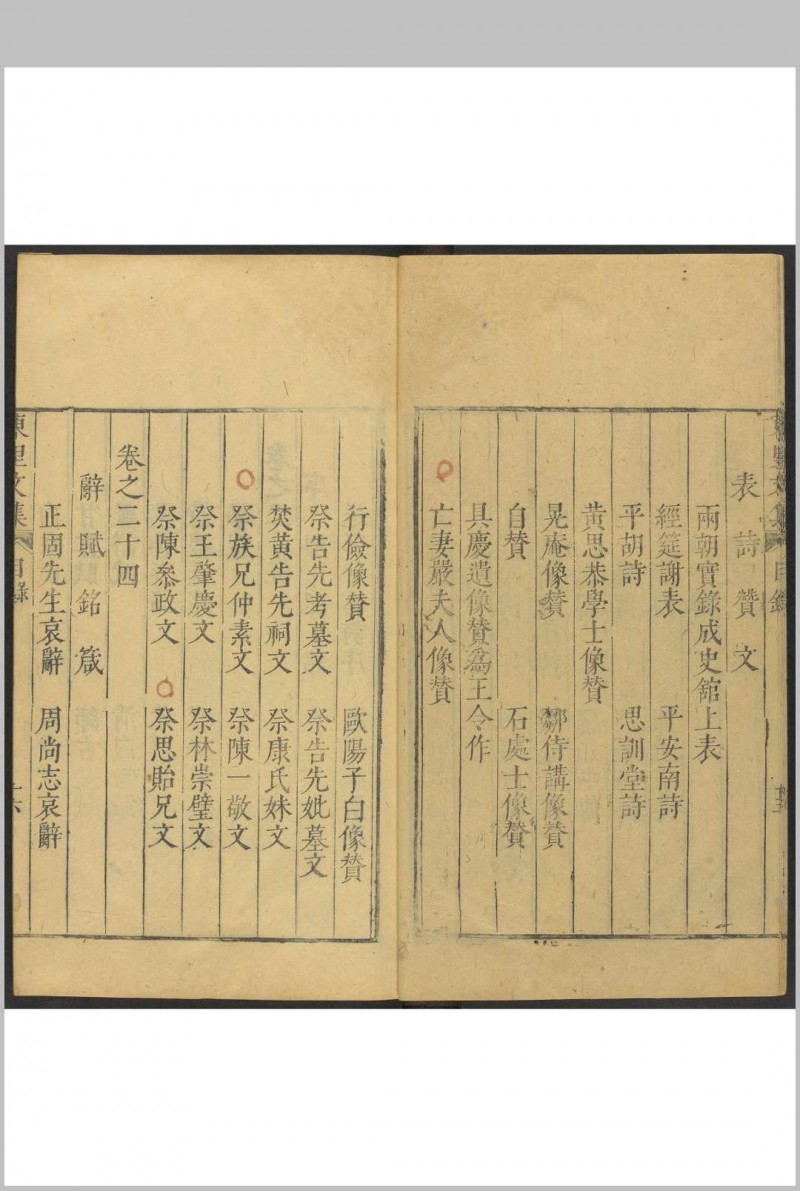 表 詩 贊 文
兩朝實錄成史館上表
經筵謝表 平安南詩
平胡詩 思訓堂詩
黃思恭學士像贊
晃庵像贊 鄒侍講像贊
自贊 石處士像贊
具慶遺像贊為王令作
亡妻嚴夫人像贊
行儉像贊 歐陽子白像贊
祭告先考墓文 祭告先妣墓文
焚黃告先祠文 祭康氏妹文
祭族兄仲素文 祭陳一敬文
祭王肇慶文 祭林崇璧文
祭陳參政文 祭思貽兄文
卷之二十四
辭 賦 銘 箴
正固先生哀辭 周尚志哀辭
東里文集 目錄 十六